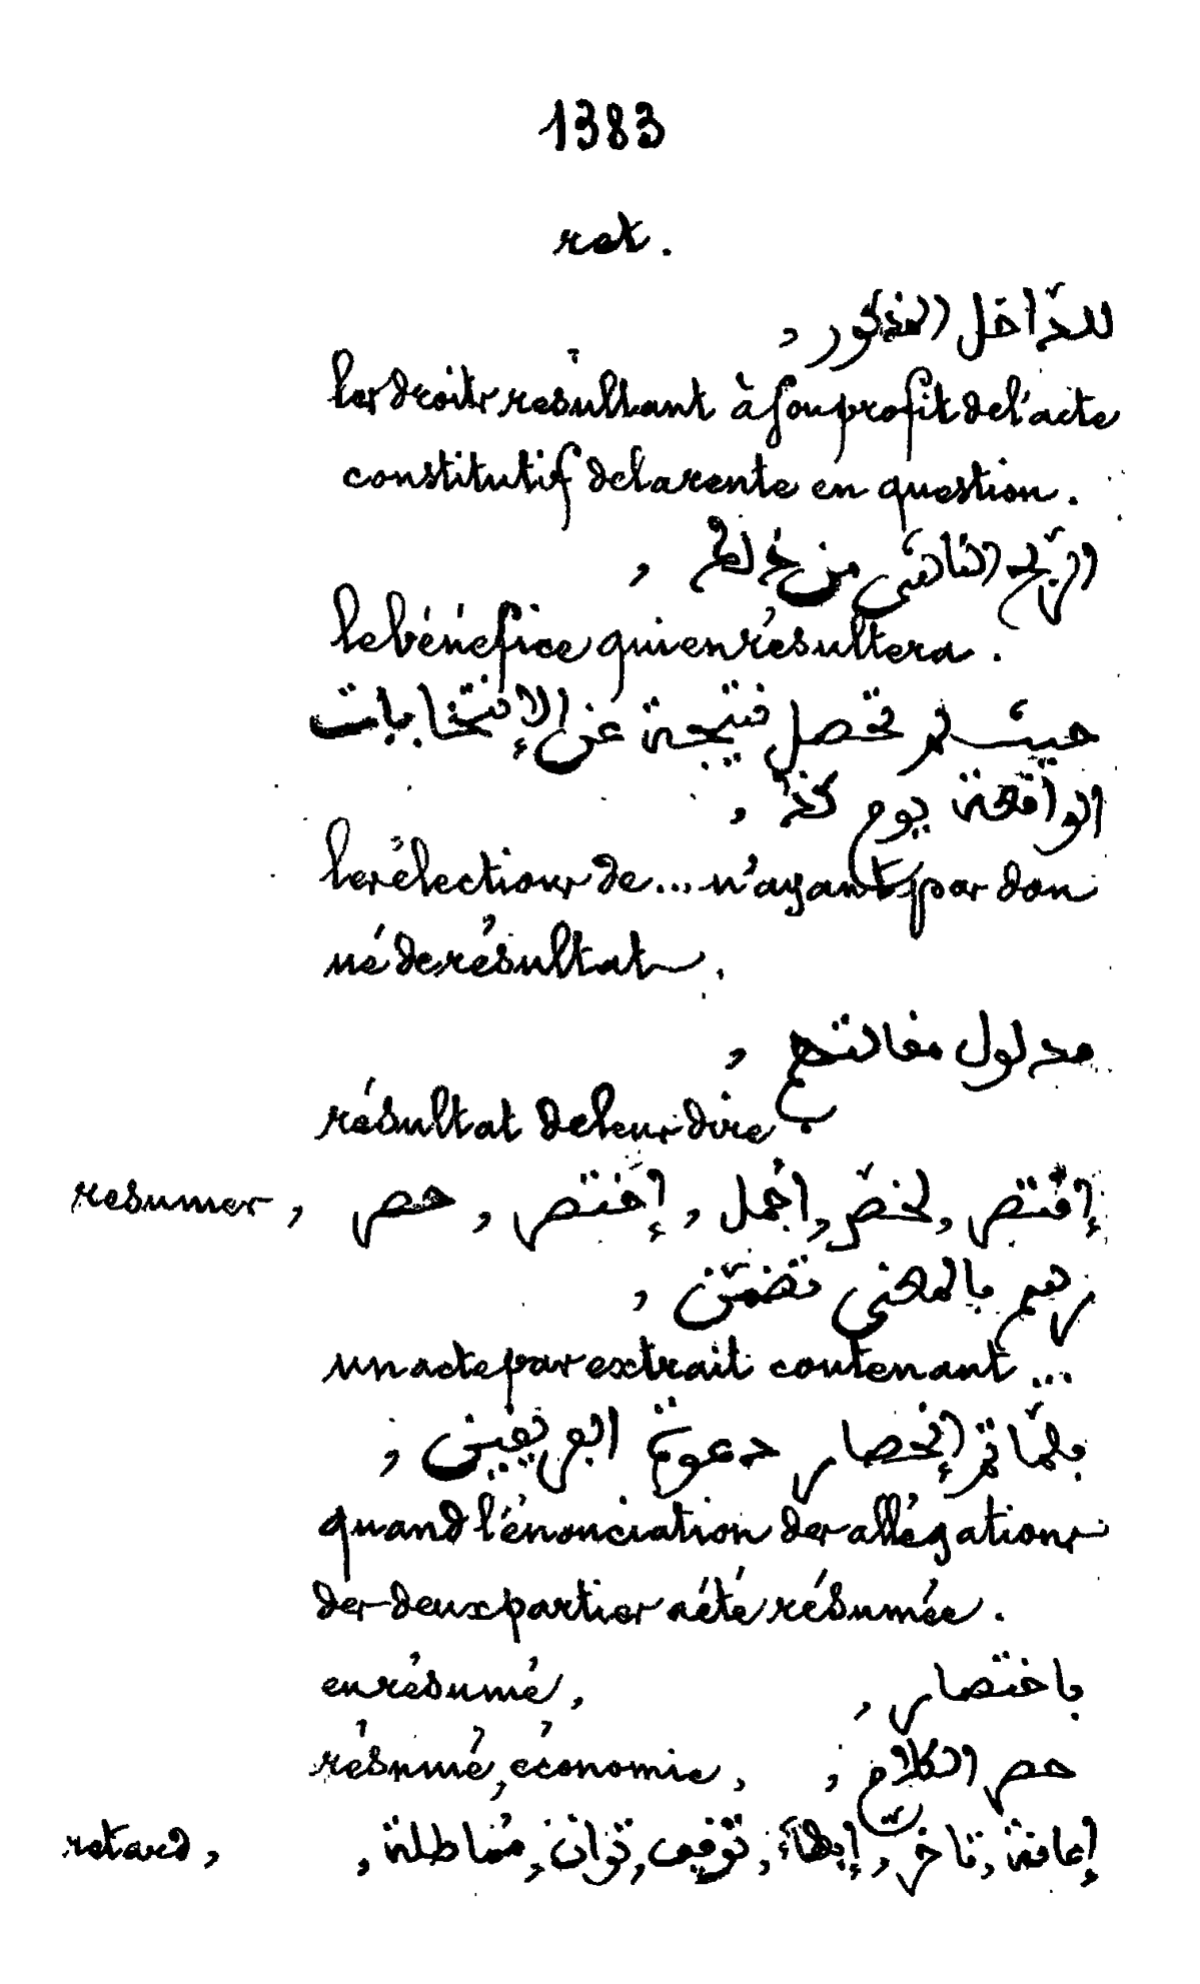 1383
ret.
للدّاخل المذكور ,
les droits résultant à son profit de l'acte
constitutif de la rente en question.
الرّبح الناشى من ذلك ,
le bénéfice qui en résultera.
حيث لم تحصل نتيجة عن الإنتخابات
الواقعة يوم كذا ,
les élections de... n'ayant pas don
né de résultat.
مدلول مقالتهم ,
résultat de leur dire
resumer , إقتص , لخّص , اجمل , إختص , حص
رسم بالمعنى تضمّن ,
un acte par extrait contenant ...
فلمّا تم إنحصار دعوة الفريقين ,
quand l'énonciation des allégations
des deux parties a été résumée.
en résumé, باختصار ,
résumé, économie, حص الكلام ,
retard , إعاقة , تاخّر , إبطاء , توقيف , توان , مماطلة ,